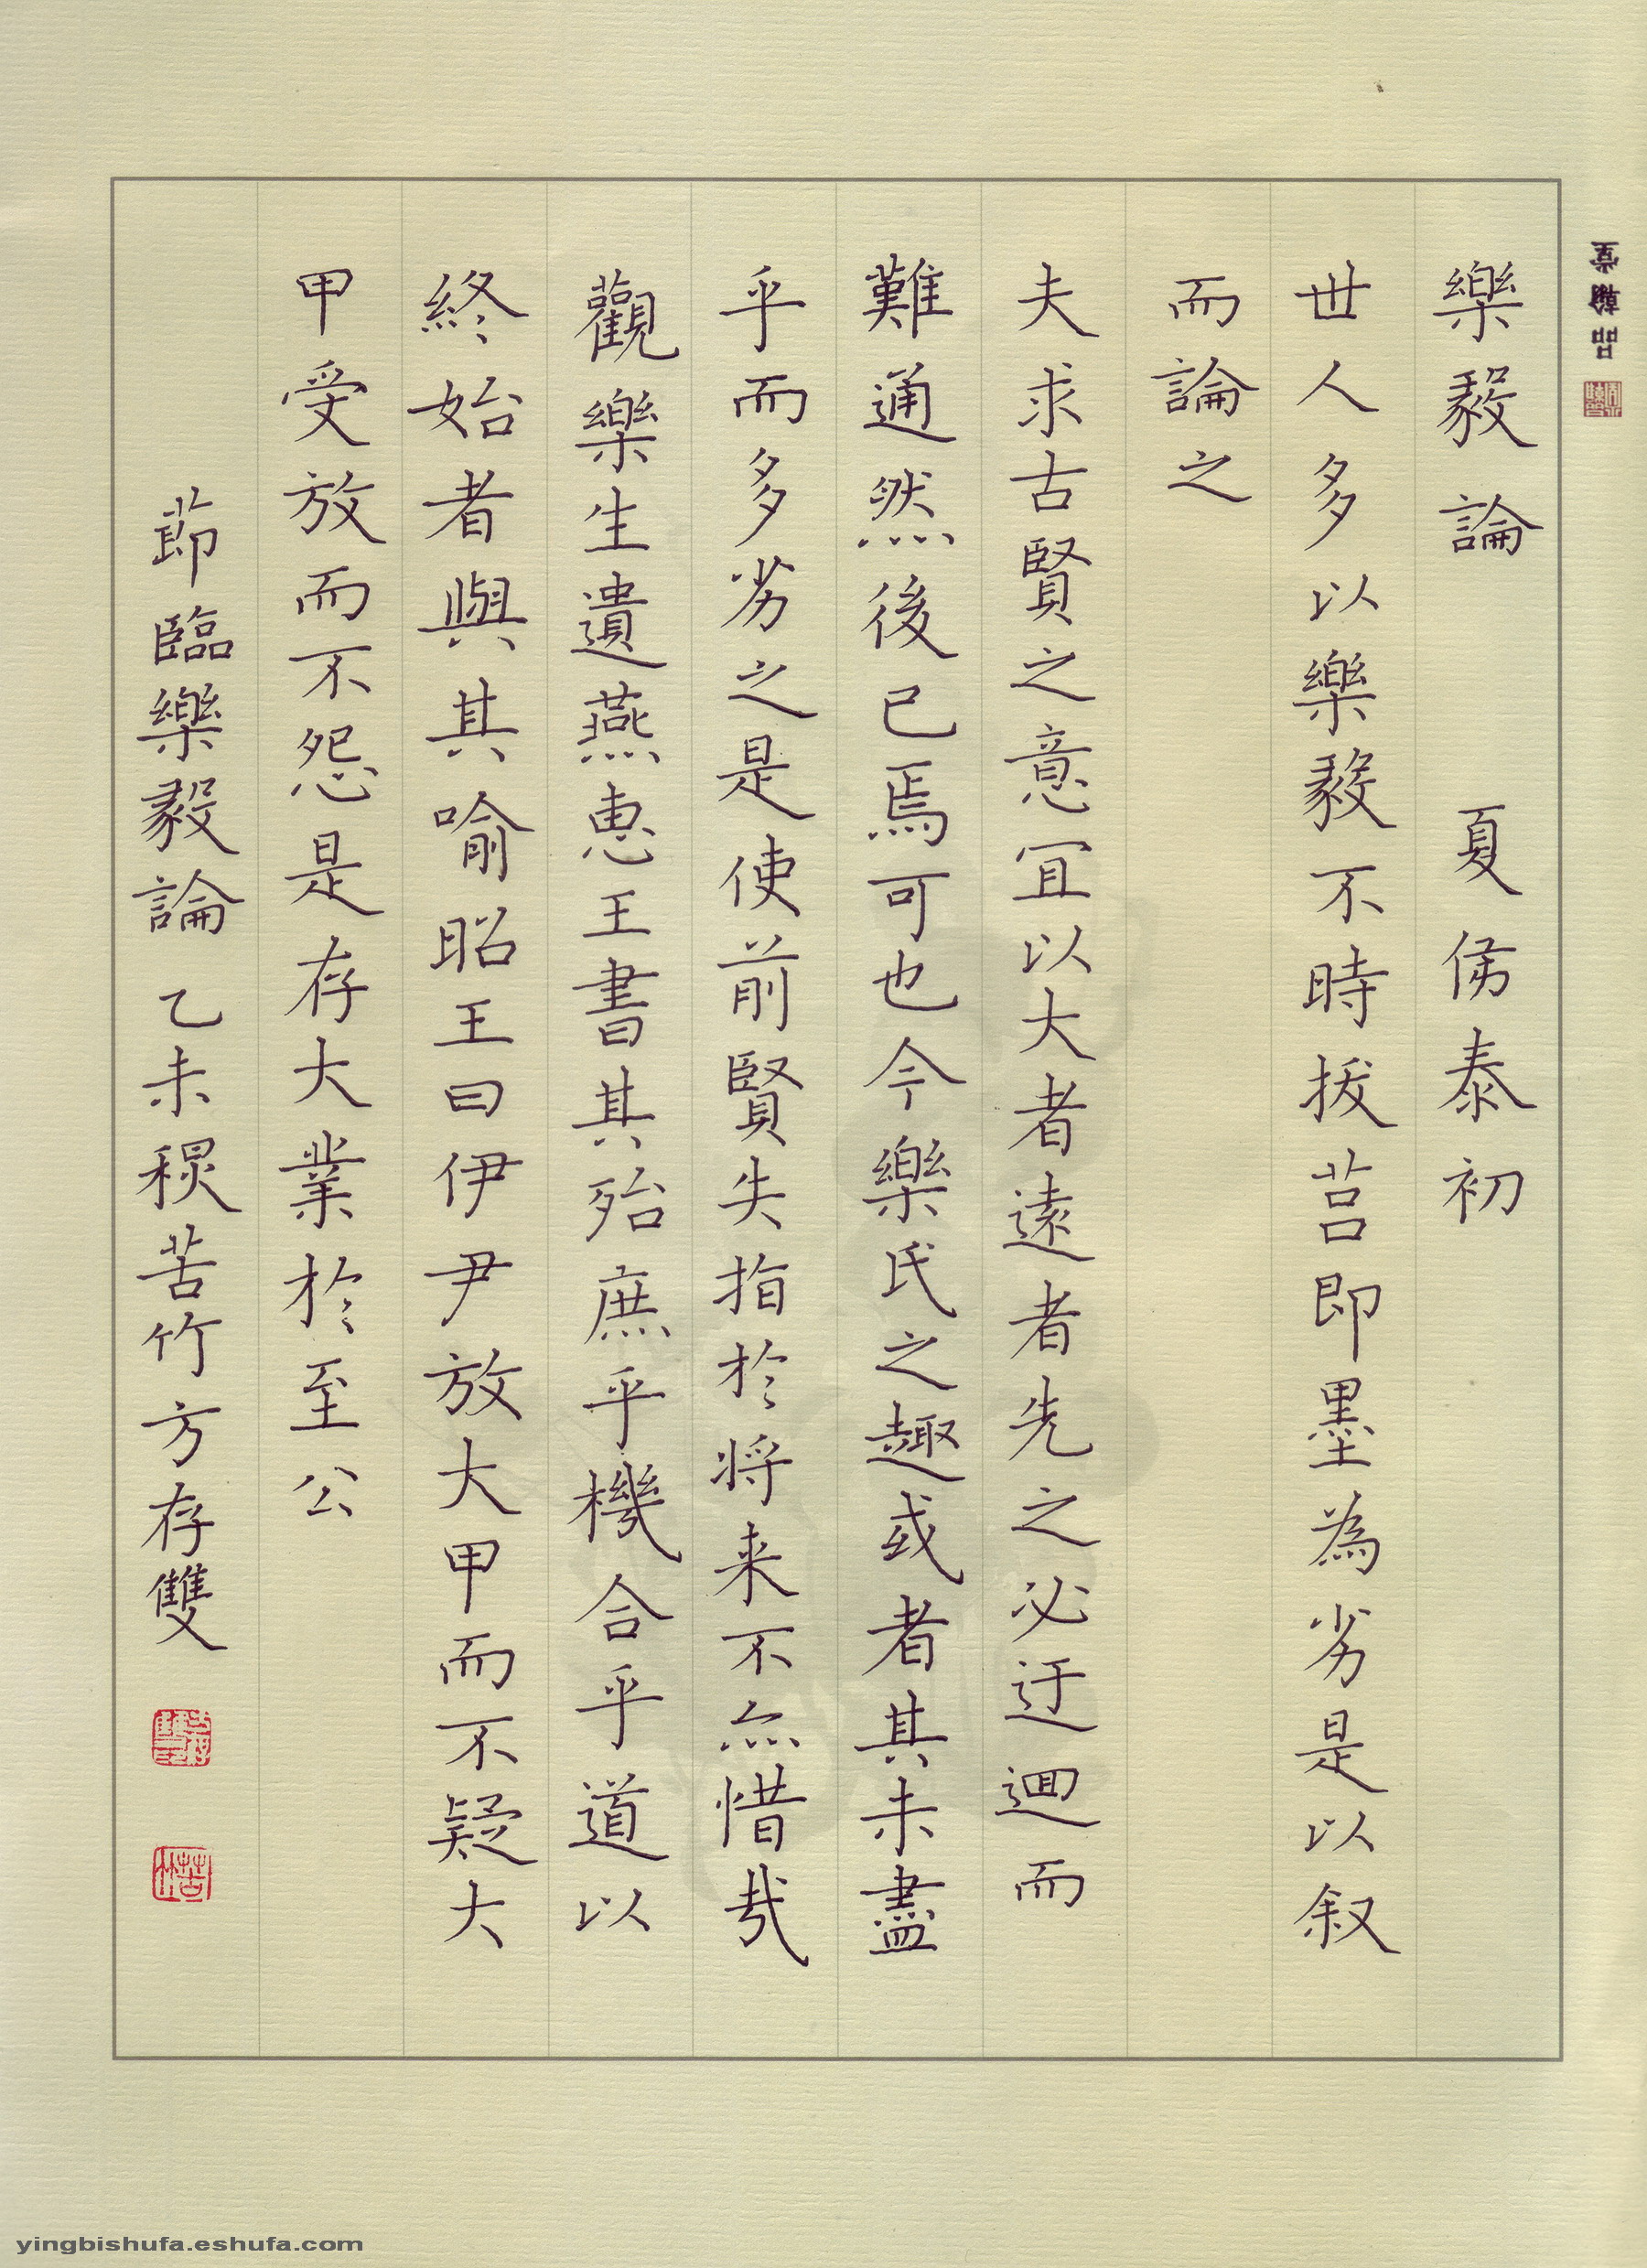 樂毅論 夏侯泰初
世人多以樂毅不時拔莒即墨為劣是以叙
而論之
夫求古賢之意宜以大者遠者先之必迂迴而
難通然後已焉可也今樂氏之趣或者其未盡
乎而多劣之是使前賢失指於將来不亦惜哉
觀樂生遺燕惠王書其殆庶乎機合乎道以
終始者與其喻昭王曰伊尹放大甲而不疑大
甲受放而不怨是存大業於至公
莭臨樂毅論 乙未穏苦竹方存雙
yingbishufa.eshufa.com